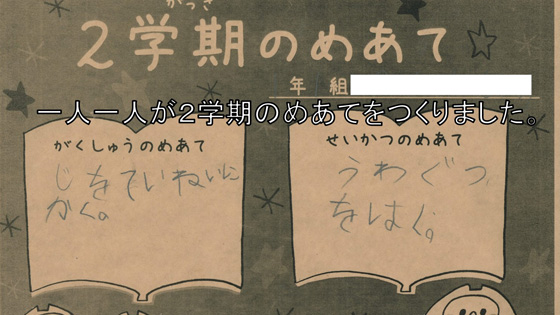 がっき
2学期のめあて
年 組
一人一人が2学期のめあてをつくりました。
がくしゅうのめあて
じをていねいに
かく。
せいかつのめあて
うわぐつ
をはく。